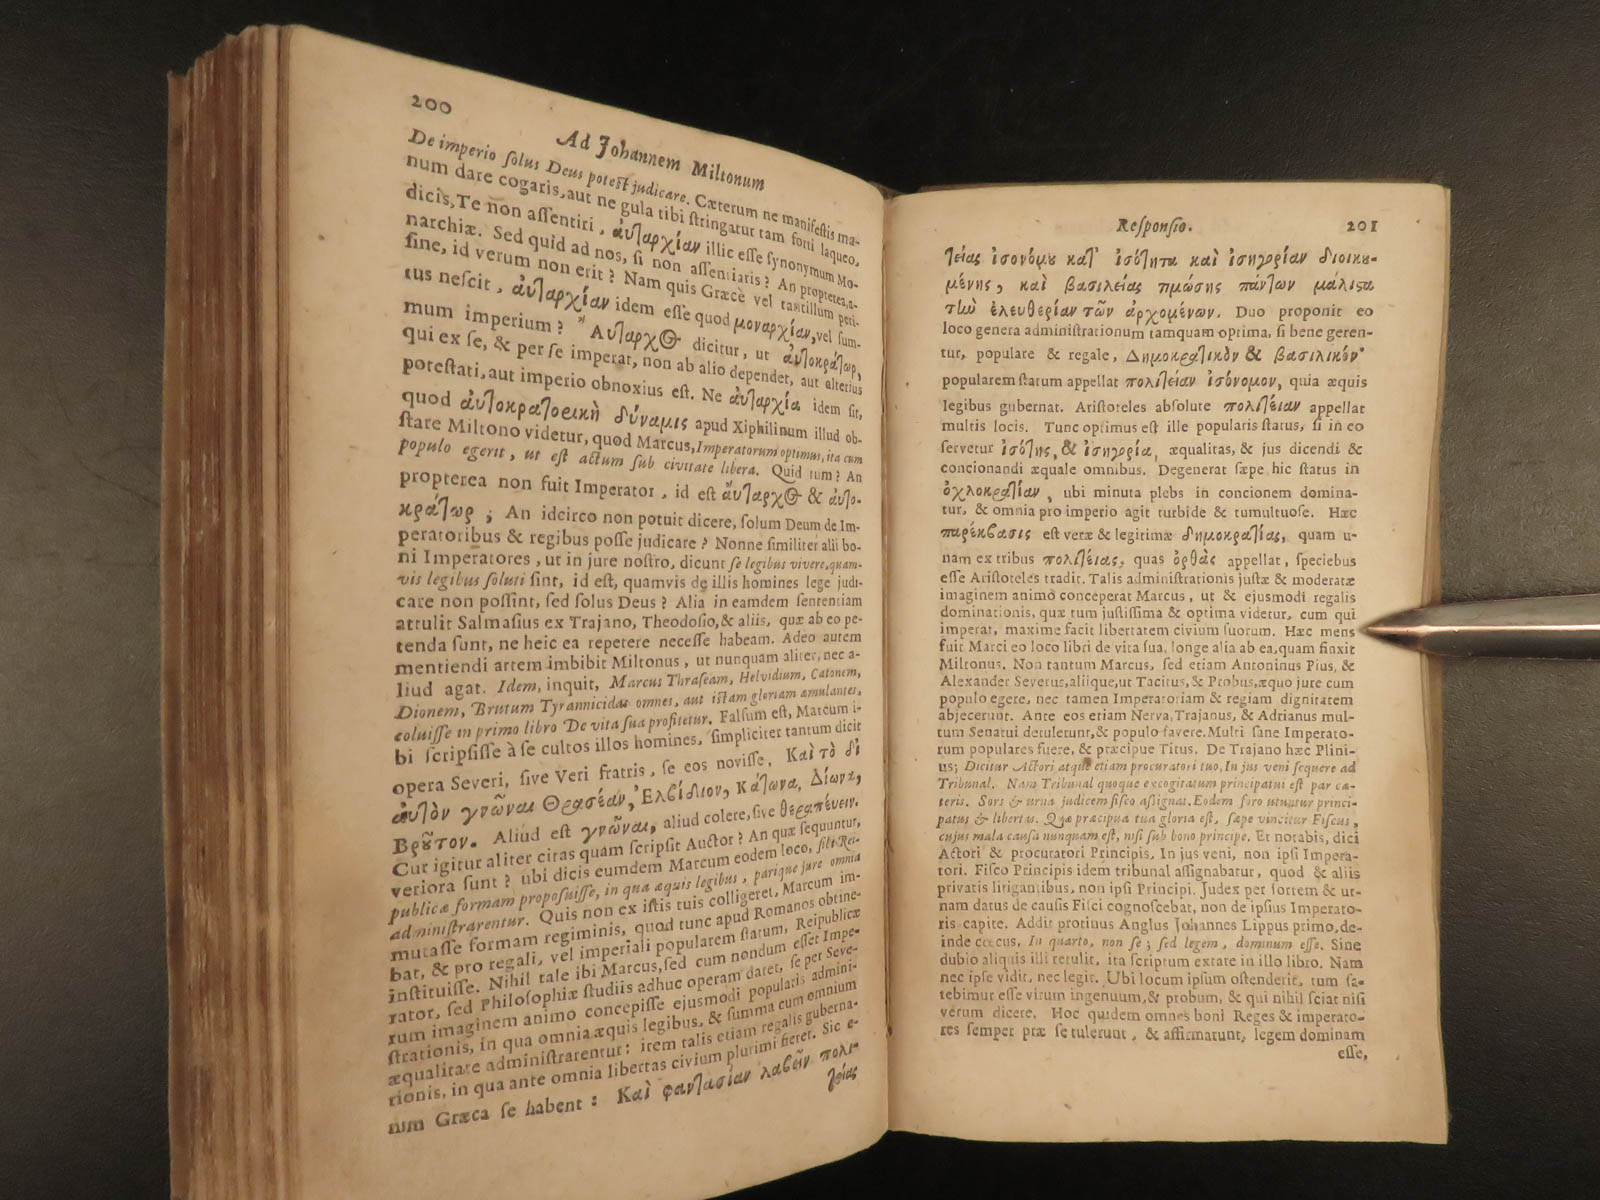 200
Ad Johannem Miltonum
De imperio ſolus Deus poteſt judicare. Cæterum ne manifeſtis ma-
num dare cogaris, aut ne gula tibi ſtringatur tam forti laqueo,
dicis, Te non aſſentiri, αὐταρχίαν illic eſſe ſynonymum Mo-
narchiæ. Sed quid ad nos, ſi non aſſentiaris? An propterea, a-
ſine, id verum non erit? Nam quis Græcè vel tantillùm peri-
tus neſcit, αὐταρχίαν idem eſſe quod μοναρχίαν, vel ſum-
mum imperium? Αὔταρχος dicitur, ut αὐτοκράτωρ,
qui ex ſe, & per ſe imperat, non ab alio dependet, aut alterius
poteſtati, aut imperio obnoxius eſt. Ne αὐταρχία idem ſit,
quod αὐτοκρατορικὴ δύναμις apud Xiphilinum illud ob-
ſtare Miltono videtur, quod Marcus, Imperatorum optimus, ita cum
populo egerit, ut eſt actum ſub civitate libera. Quid tum? An
propterea non fuit Imperator, id eſt αὔταρχος & αὐτο-
κράτωρ; An idcirco non potuit dicere, ſolum Deum de Im-
peratoribus & regibus poſſe judicare? Nonne ſimiliter alii bo-
ni Imperatores, ut in jure noſtro, dicunt ſe legibus vivere, quam-
vis legibus ſoluti ſint, id eſt, quamvis de illis homines lege judi-
care non poſſint, ſed ſolus Deus? Alia in eamdem ſententiam
attulit Salmaſius ex Trajano, Theodoſio, & aliis, quæ ab eo pe-
tenda ſunt, ne heic ea repetere neceſſe habeam. Adeo autem
mentiendi artem imbibit Miltonus, ut nunquam aliter, nec a-
liud agat. Idem, inquit, Marcus Thraſeam, Helvidium, Catonem,
Dionem, Brutum Tyrannicidas omnes, aut iſtam gloriam æmulantes,
coluiſſe in primo libro De vita ſua profitetur. Falſum eſt, Marcum i-
bi ſcripſiſſe à ſe cultos illos homines, ſimpliciter tantum dicit
opera Severi, ſive Veri fratris, ſe eos noviſſe, Καὶ τὸ δι'
αὐτὸν γνῶναι Θρασέαν, Ἑλβίδιον, Κάτωνα, Δίωνα,
Βροῦτον. Aliud eſt γνῶναι, aliud colere, ſive θεραπεύειν.
Cur igitur aliter citas quam ſcripſit Auctor? An quæ ſequuntur,
veriora ſunt? ubi dicis eumdem Marcum eodem loco, ſibi Rei-
publicæ formam propoſuiſſe, in qua æquis legibus, parique jure omnia
adminiſtrarentur. Quis non ex iſtis tuis colligeret, Marcum im-
mutaſſe formam regiminis, quod tunc apud Romanos obtine-
bat, & pro regali, vel imperiali popularem ſtatum, Reipublicæ
inſtituiſſe. Nihil tale ibi Marcus, ſed cum nondum eſſet Impe-
rator, ſed Philoſophiæ ſtudiis adhuc operam daret, ſe per Seve-
rum imaginem animo concepiſſe ejuſmodi popularis admini-
ſtrationis, in qua omnia æquis legibus, & ſumma cum omnium
æqualitate adminiſtrarentur: item talis etiam regalis guberna-
tionis, in qua ante omnia libertas civium plurimi fieret. Sic e-
nim Græca ſe habent: Καὶ φαντασίαν λαβεῖν πολι-
τείας
Reſponſio.
201
τείας ἰσονόμου κατ' ἰσότητα καὶ ἰσηγορίαν διοικου-
μένης, καὶ βασιλείας τιμώσης πάντων μάλιστα
τὴν ἐλευθερίαν τῶν ἀρχομένων. Duo proponit eo
loco genera adminiſtrationum tamquam optima, ſi bene geren-
tur, populare & regale, Δημοκρατικὸν & βασιλικόν·
popularem ſtatum appellat πολιτείαν ἰσόνομον, quia æquis
legibus gubernat. Ariſtoteles abſolute πολιτείαν appellat
multis locis. Tunc optimus eſt ille popularis ſtatus, ſi in eo
ſervetur ἰσότης, & ἰσηγορία, æqualitas, & jus dicendi &
concionandi æquale omnibus. Degenerat ſæpe hic ſtatus in
ὀχλοκρατίαν, ubi minuta plebs in concionem domina-
tur, & omnia pro imperio agit turbide & tumultuoſe. Hæc
παρέκβασις eſt veræ & legitimæ δημοκρατίας, quam u-
nam ex tribus πολιτείας, quas ὀρθὰς appellat, ſpeciebus
eſſe Ariſtoteles tradit. Talis adminiſtrationis juſtæ & moderatæ
imaginem animo conceperat Marcus, ut & ejuſmodi regalis
dominationis, quæ tum juſtiſſima & optima videtur, cum qui
imperat, maxime facit libertatem civium ſuorum. Hæc mens
fuit Marci eo loco libri de vita ſua, longe alia ab ea, quam finxit
Miltonus. Non tantum Marcus, ſed etiam Antoninus Pius, &
Alexander Severus, aliique, ut Tacitus, & Probus, æquo jure cum
populo egere, nec tamen Imperatoriam & regiam dignitatem
abjecerunt. Ante eos etiam Nerva, Trajanus, & Adrianus mul-
tum Senatui detulerunt, & populo favere. Multi ſane Imperato-
rum populares fuere, & præcipue Titus. De Trajano hæc Plini-
us; Dicitur Actori atque etiam procuratori tuo, In jus veni ſequere ad
Tribunal. Nam Tribunal quoque excogitatum principatui eſt par ca-
teris. Sors & urna judicem fiſco aſſignat. Eodem foro utuntur princi-
patus & libertas. Quæ præcipua tua gloria eſt, ſæpe vincitur Fiſcus,
cujus mala cauſa nunquam eſt, niſi ſub bono principe. Et notabis, dici
Actori & procuratori Principis, In jus veni, non ipſi Impera-
tori. Fiſco Principis idem tribunal aſſignabatur, quod & aliis
privatis litigantibus, non ipſi Principi. Judex per ſortem & ur-
nam datus de cauſis Fiſci cognoſcebat, non de ipſius Imperato-
ris capite. Addit protinus Anglus Johannes Lippus primo, de-
inde cœcus, In quarto, non ſe; ſed legem, dominum eſſe. Sine
dubio aliquis illi retulit, ita ſcriptum extare in illo libro. Nam
nec ipſe vidit, nec legit. Ubi locum ipſum oſtenderit, tum fa-
tebimur eſſe virum ingenuum, & probum, & qui nihil ſciat niſi
verum dicere. Hoc quidem omnes boni Reges & imperato-
res ſemper præ ſe tulerunt, & affirmarunt, legem dominam
eſſe,